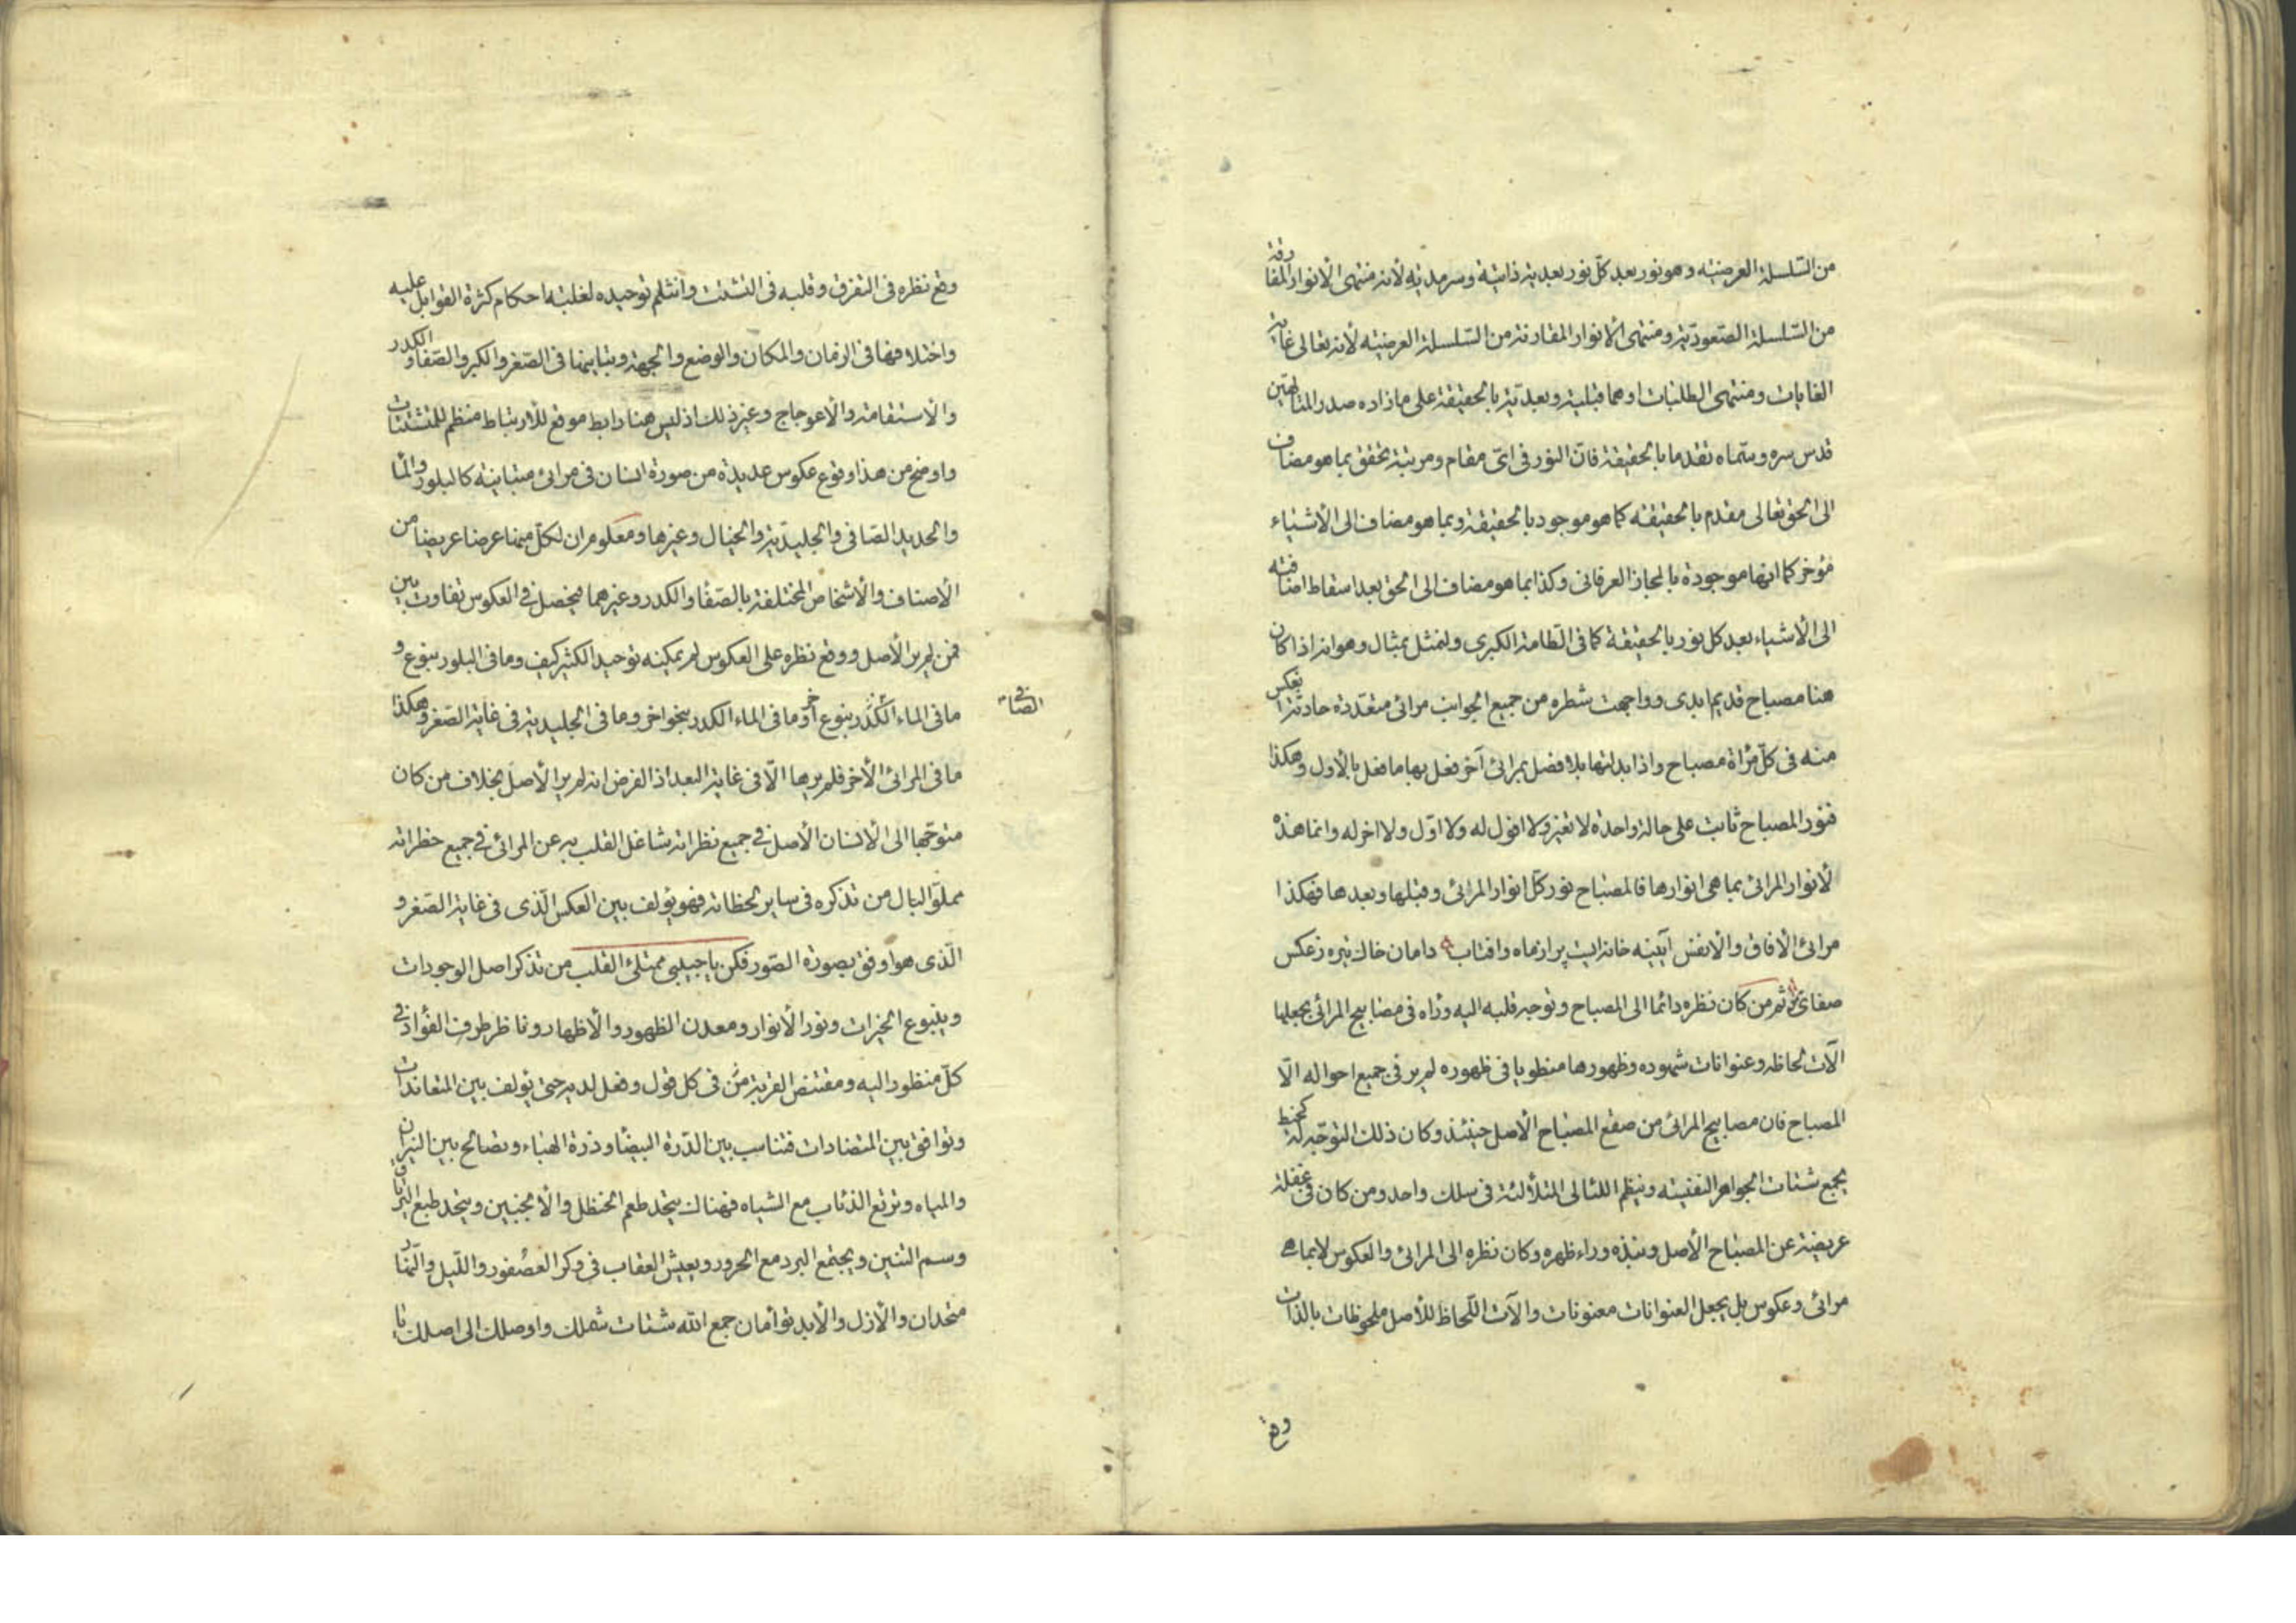 من السّلسلة العرضيّه وهو نور بعد كلّ نور بعديّة ذاتيّة وسرمديّة لأنه منتهى الأنوار المفارقة
من السّلسلة الصّعوديّة ومنتهى الأنوار المقارنة من السّلسلة العرضيّه لأنه تعالى غاية
الغايات ومنتهى الطلبات اوهما قبلية وبعديّة بالحقيقة على ما زاده صدر المتالهين
قدس سره وسمّاه تقدما بالحقيقة فانّ النور فى اىّ مقام ومرتبة تحقق بما هو مضاف
الى الحق تعالى مقدم بالحقيقة كما هو موجود بالحقيقة وبما هو مضاف الى الأشياء
مؤخر كما انها موجودة بالمجاز العرفانى وكذا بما هو مضاف الى الحق بعد اسقاط اضافته
الى الأشياء بعد كل نور بالحقيقة كما فى الطّامة الكبرى ولنمثل بمثال وهو انه اذا كان
هنا مصباح قديم ابدى وواجهت شطره من جميع الجوانب مرائى متعدّدة حادثة انعكس
منه فى كلّ مرآة مصباح واذا بدلتها بلا فصل بمرائى آخر فعل بها ما فعل بالأول وهكذا
فنور المصباح ثابت على حالة واحدة لا تغيّر ولا افول له ولا اوّل ولا اخر له وانما هذه
لأنوار المرائى بما هى انوارها فالمصباح نور كلّ انوار المرائى وقبلها وبعدها فهكذا
مرائى الآفاق والانفس آيينه خانه ايست پر از ماه وافتاب دامان خاك تيره ز عكس
صفاى ثم من كان نظره دائما الى المصباح وتوجه قلبه اليه وراه فى مصابيح المرائى بجعلها
آلات لحاظه وعنوانات شهوده وظهورها منطويا فى ظهوره لم ير فى جميع احواله الّا
المصباح فان مصابيح المرائى من صقع المصباح الأصل حينئذ وكان ذلك التوجّه له كخيط
يجمع شتات الجواهر النفيسه وينظم اللئالى المتلألئة فى سلك واحد ومن كان فى غفلة
عريضة عن المصباح الأصل ونبذه وراء ظهره وكان نظره الى المرائى والعكوس لا بما هى
مرائى وعكوس بل يجعل العنوانات معنونات وآلات اللّحاظ للأصل ملحوظات بالذات
وقع
وقع نظره فى التفرق وقلبه فى التشتت وانثلم توحيده لغلبة احكام كثرة القوابل عليه
واختلافها فى الزمان والمكان والوضع والجهة وتباينها فى الصّغر والكبر والصّفا والكدر
والاستقامة والأعوجاج وغير ذلك اذ ليس هنا رابط موقع للأرتباط منظم للمتشتتات
واوضح من هذا وقوع عكوس عديدة من صورة انسان فى مرائى متباينة كالبلور والماء
والحديد الصّافى والجليديّة والخيال وغيرها ومعلوم ان لكلّ منها عرضا عريضا من
الأصناف والأشخاص المختلفة بالصّفا والكدر وغيرهما فيحصل فى العكوس تفاوت بين
فمن لم ير الأصل ووقع نظره على العكوس لم يمكنه توحيد الكثير كيف وما فى البلور بنوع و
ما فى الماء الكدر بنوع آخر وما فى الماء الكدر بنحو اخر وما فى الجليدية فى غاية الصّغر وهكذا
الصّافى
ما فى المرائى الأخر فلم يرها الّا فى غاية البعد اذ الفرض انه لم ير الأصل بخلاف من كان
متوجّها الى الأنسان الأصل فى جميع نظراته شاغل القلب به عن المرائى فى جميع خطراته
مملوّ البال من تذكره فى ساير لحظاته فهو يؤلف بين العكس الّذى فى غاية الصّغر و
الّذى هو اوفق بصورة الصّور فكن يا حبيبى ممتلئ القلب من تذكر اصل الوجودات
وينبوع الخيرات ونور الأنوار ومعدن الظهور والأظهار وناظر طرف الفؤاد فى
كلّ منظور اليه ومقتنص القربة منّ فى كل قول وفعل لديه حتى يؤلف بين المتعاندات
وتوافق بين المتضادات فتناسب بين الدّرة البيضا وذرة الهباء وتصالح بين النيران
والمياه وترتع الذئاب مع الشياه فهناك يتحد طعم الحنظل والأنجبين ويتحد طبع الترياق
وسم التنين ويجتمع البرد مع الحرور ويعيش العقاب فى وكر العصفور والليل والنّهار
متحدان والأزل والأبد توأمان جمع الله شتات شملك واوصلك الى اصلك